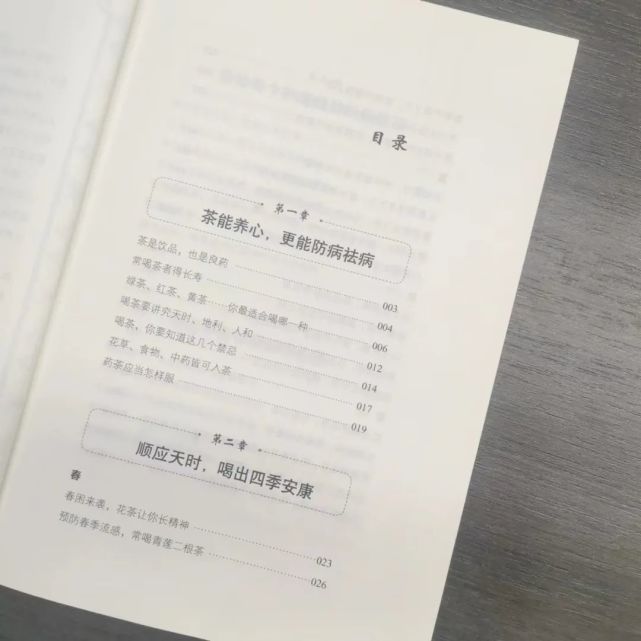 目录
第一章
茶能养心，更能防病祛病
茶是饮品，也是良药 003
常喝茶者得长寿 004
绿茶、红茶、黄茶……你最适合喝哪一种 006
喝茶要讲究天时、地利、人和 012
喝茶，你要知道这几个禁忌 014
花草、食物、中药皆可入茶 017
药茶应当怎样服 019
第二章
顺应天时，喝出四季安康
春
春困来袭，花茶让你长精神 023
预防春季流感，常喝青莲二根茶 026